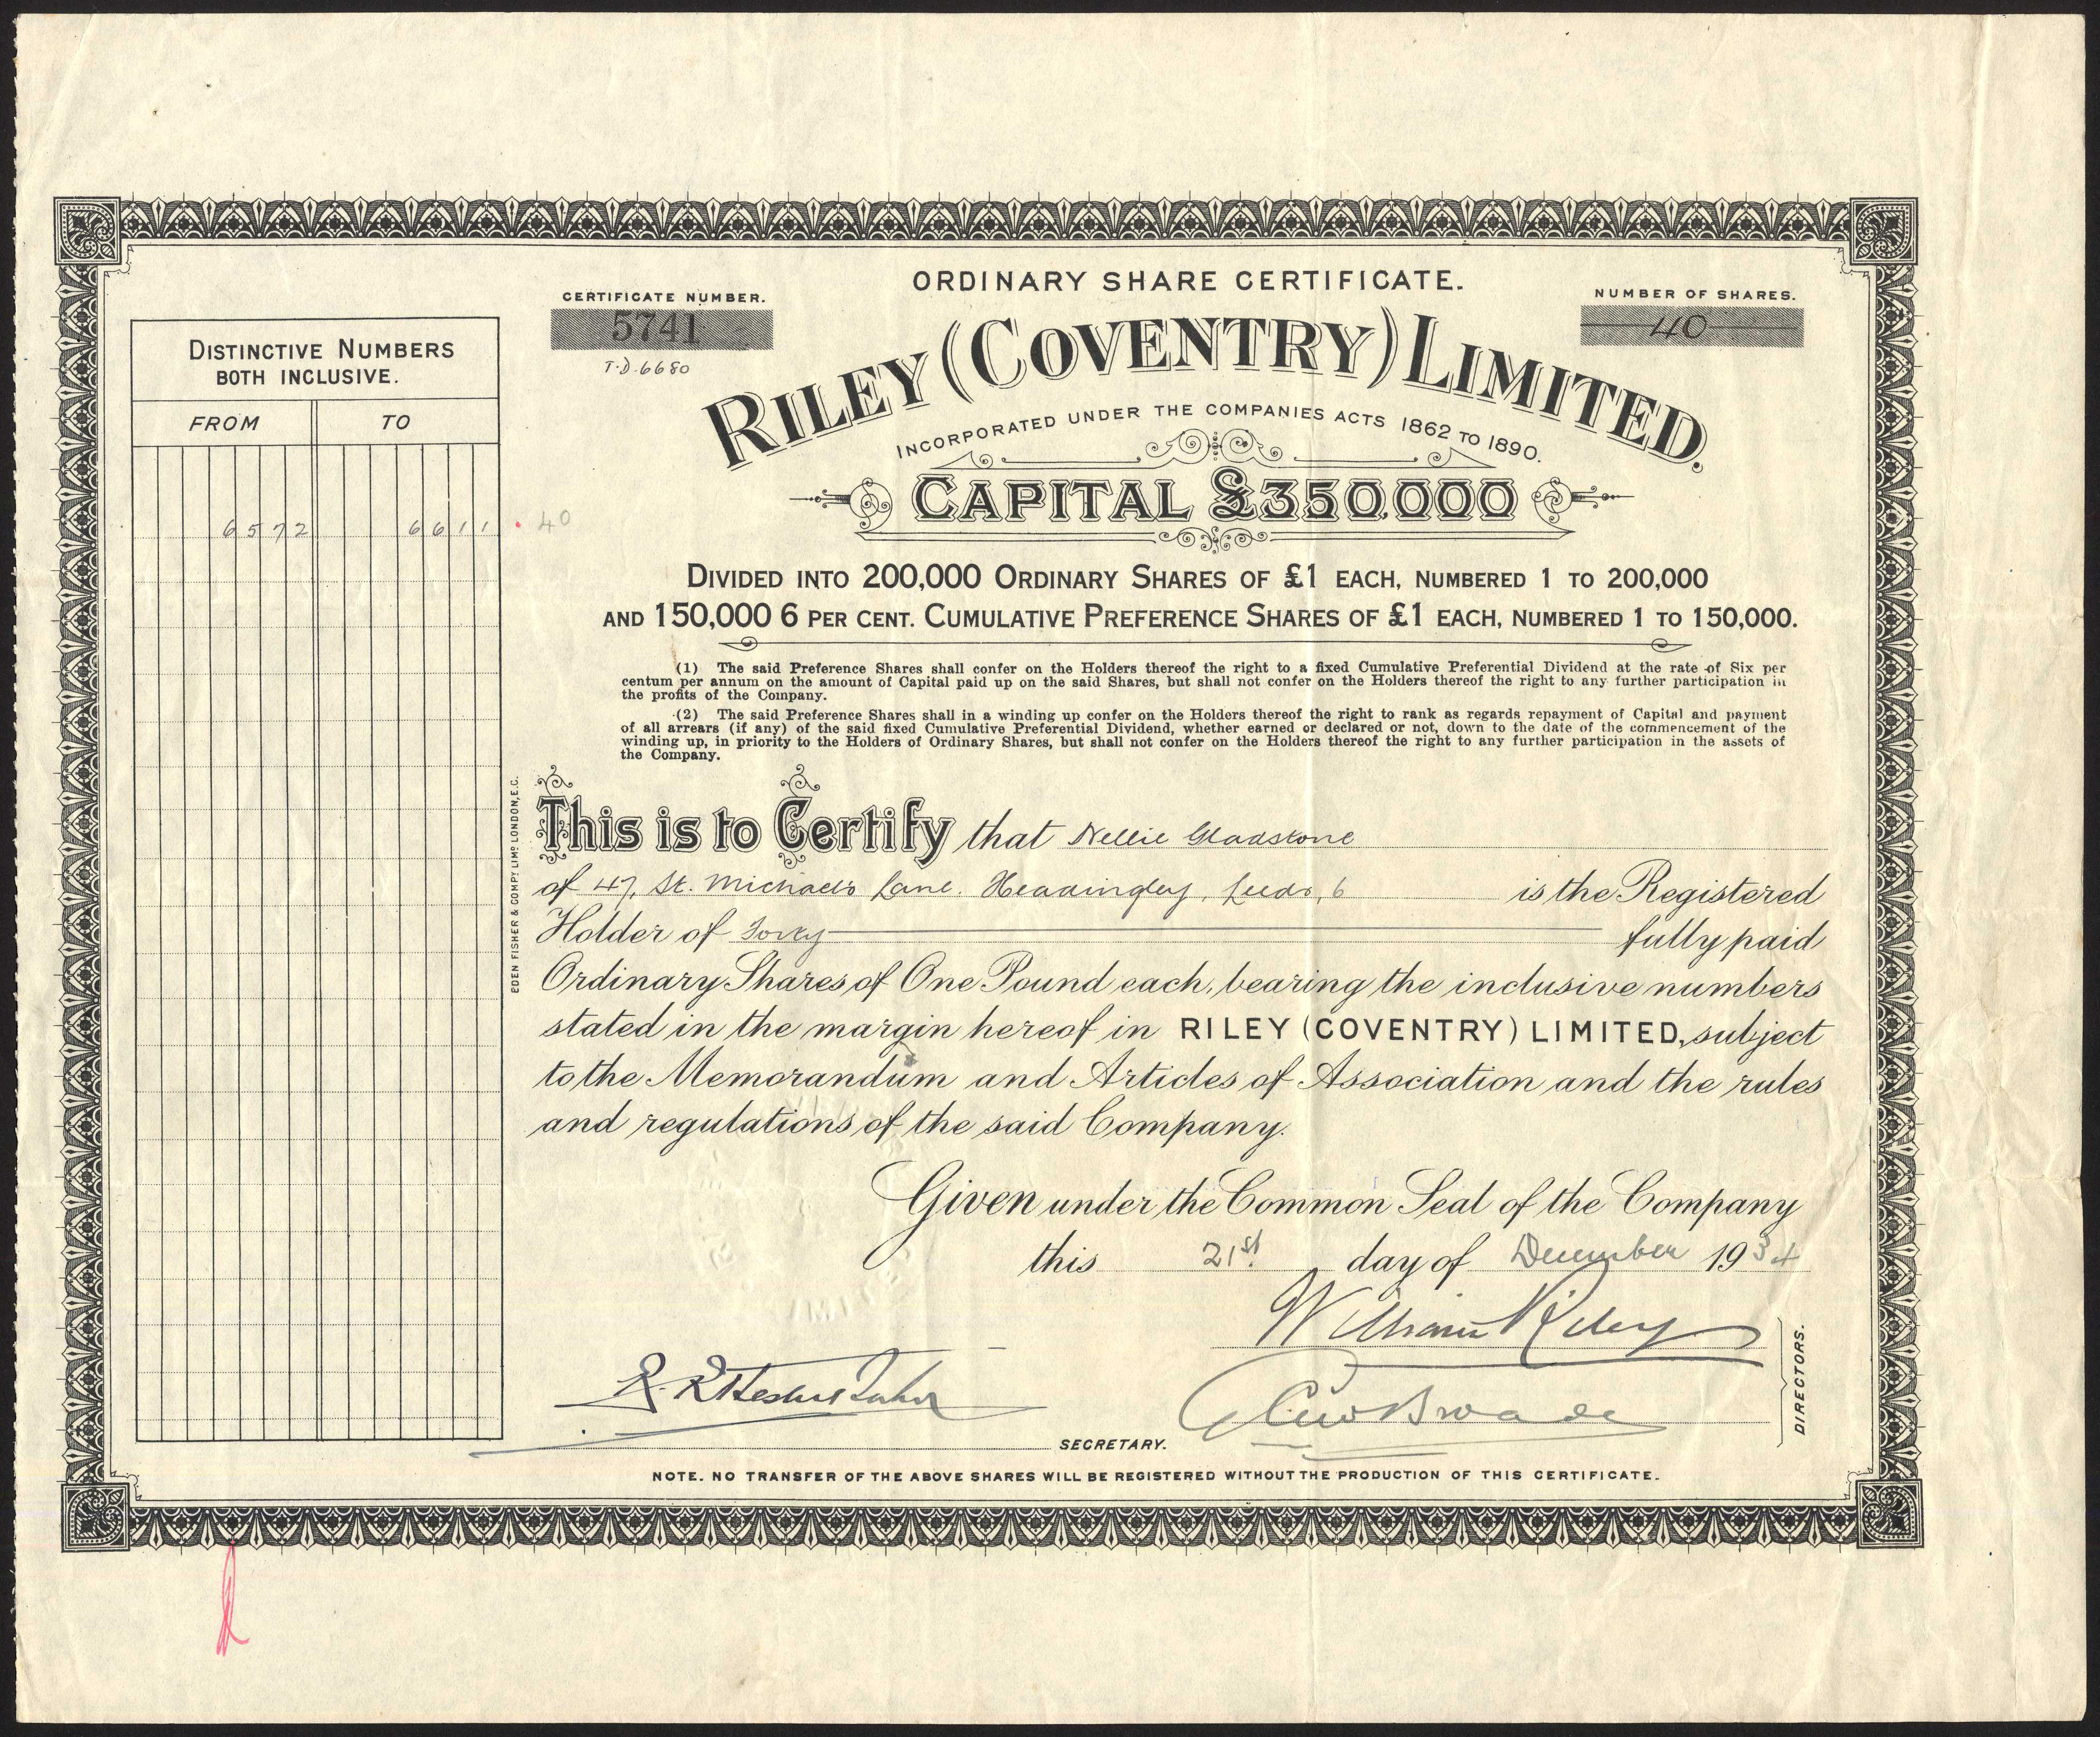 ORDINARY SHARE CERTIFICATE.
CERTIFICATE NUMBER.
5741
T.D. 6680
NUMBER OF SHARES.
40
RILEY (COVENTRY) LIMITED.
INCORPORATED UNDER THE COMPANIES ACTS 1862 TO 1890.
CAPITAL £350,000
DIVIDED INTO 200,000 ORDINARY SHARES OF £1 EACH, NUMBERED 1 TO 200,000
AND 150,000 6 PER CENT. CUMULATIVE PREFERENCE SHARES OF £1 EACH, NUMBERED 1 TO 150,000.
(1) The said Preference Shares shall confer on the Holders thereof the right to a fixed Cumulative Preferential Dividend at the rate of Six per
centum per annum on the amount of Capital paid up on the said Shares, but shall not confer on the Holders thereof the right to any further participation in
the profits of the Company.
(2) The said Preference Shares shall in a winding up confer on the Holders thereof the right to rank as regards repayment of Capital and payment
of all arrears (if any) of the said fixed Cumulative Preferential Dividend, whether earned or declared or not, down to the date of the commencement of the
winding up, in priority to the Holders of Ordinary Shares, but shall not confer on the Holders thereof the right to any further participation in the assets of
the Company.
DISTINCTIVE NUMBERS
BOTH INCLUSIVE.
FROM TO
6572 6611 40
EDEN FISHER & COMPY LIMD LONDON, E.C.
This is to Certify that Nellie Gladstone
of 47, St. Michael's Lane. Headingley, Leeds, 6 is the Registered
Holder of Forty fully paid
Ordinary Shares of One Pound each, bearing the inclusive numbers
stated in the margin hereof in RILEY (COVENTRY) LIMITED, subject
to the Memorandum and Articles of Association and the rules
and regulations of the said Company.
Given under the Common Seal of the Company
this 21st day of December 1934
William Riley
DIRECTORS.
SECRETARY.
NOTE. NO TRANSFER OF THE ABOVE SHARES WILL BE REGISTERED WITHOUT THE PRODUCTION OF THIS CERTIFICATE.